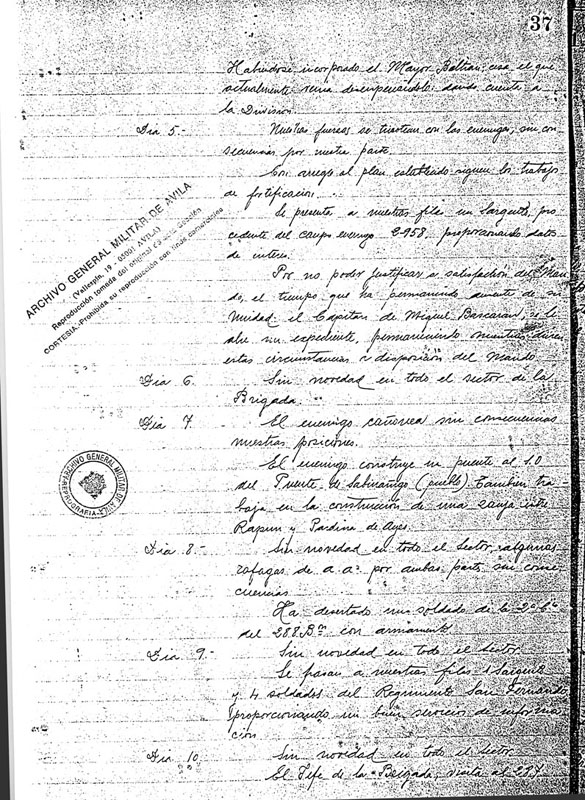 37
Habiendose incorporado el Mayor Beltran, cesa el que
actualmente venia desempeñandolo dando cuenta a
la Division
Dia 5.- Nuestras fuerzas se tirotean con las enemigas, sin con-
secuencias por nuestra parte.
Con arreglo al plan establecido siguen los trabajos
de fortificacion.
Se presenta a nuestras filas un Sargento, pro-
cedente del campo enemigo proporcionando datos
de interes.
Por no poder justificar a satisfaccion del Man-
do, el tiempo que ha permanecido ausente de su
Unidad el Capitan de Miguel Bascaran, se le
abre un expediente, permaneciendo mientras duren
estas circunstancias a disposicion del Mando
Dia 6. Sin novedad en todo el sector de la
Brigada.
Dia 7. El enemigo cañonea sin consecuencias
nuestras posiciones.
El enemigo construye un puente al S.O.
del Puente de Sabiñanigo (pueblo). Tambien tra-
baja en la construccion de una zanja entre
Rapun y Pardina de Ayes
Dia 8.- Sin novedad en todo el Sector, algunas
rafagas de a.a. por ambas partes sin conse-
cuencias
Ha desertado un soldado de la 2ª Cª
del 288 Bon con armamento.
Dia 9.- Sin novedad en todo el Sector.
Se pasan a nuestras filas 1 Sargento
y 4 soldados del Regimiento San Fernando
proporcionando un buen servicio de informa-
cion
Dia 10 Sin novedad en todo el Sector
El Jefe de la Brigada, visita al 287
ARCHIVO GENERAL MILITAR DE AVILA
(Vallespin, 19 - 05001 AVILA)
Reproducción tomada del original
CORTESIA.-Prohibida su reproducción con fines comerciales
ARCHIVO GENERAL MILITAR DE AVILA
REPROGRAFIA